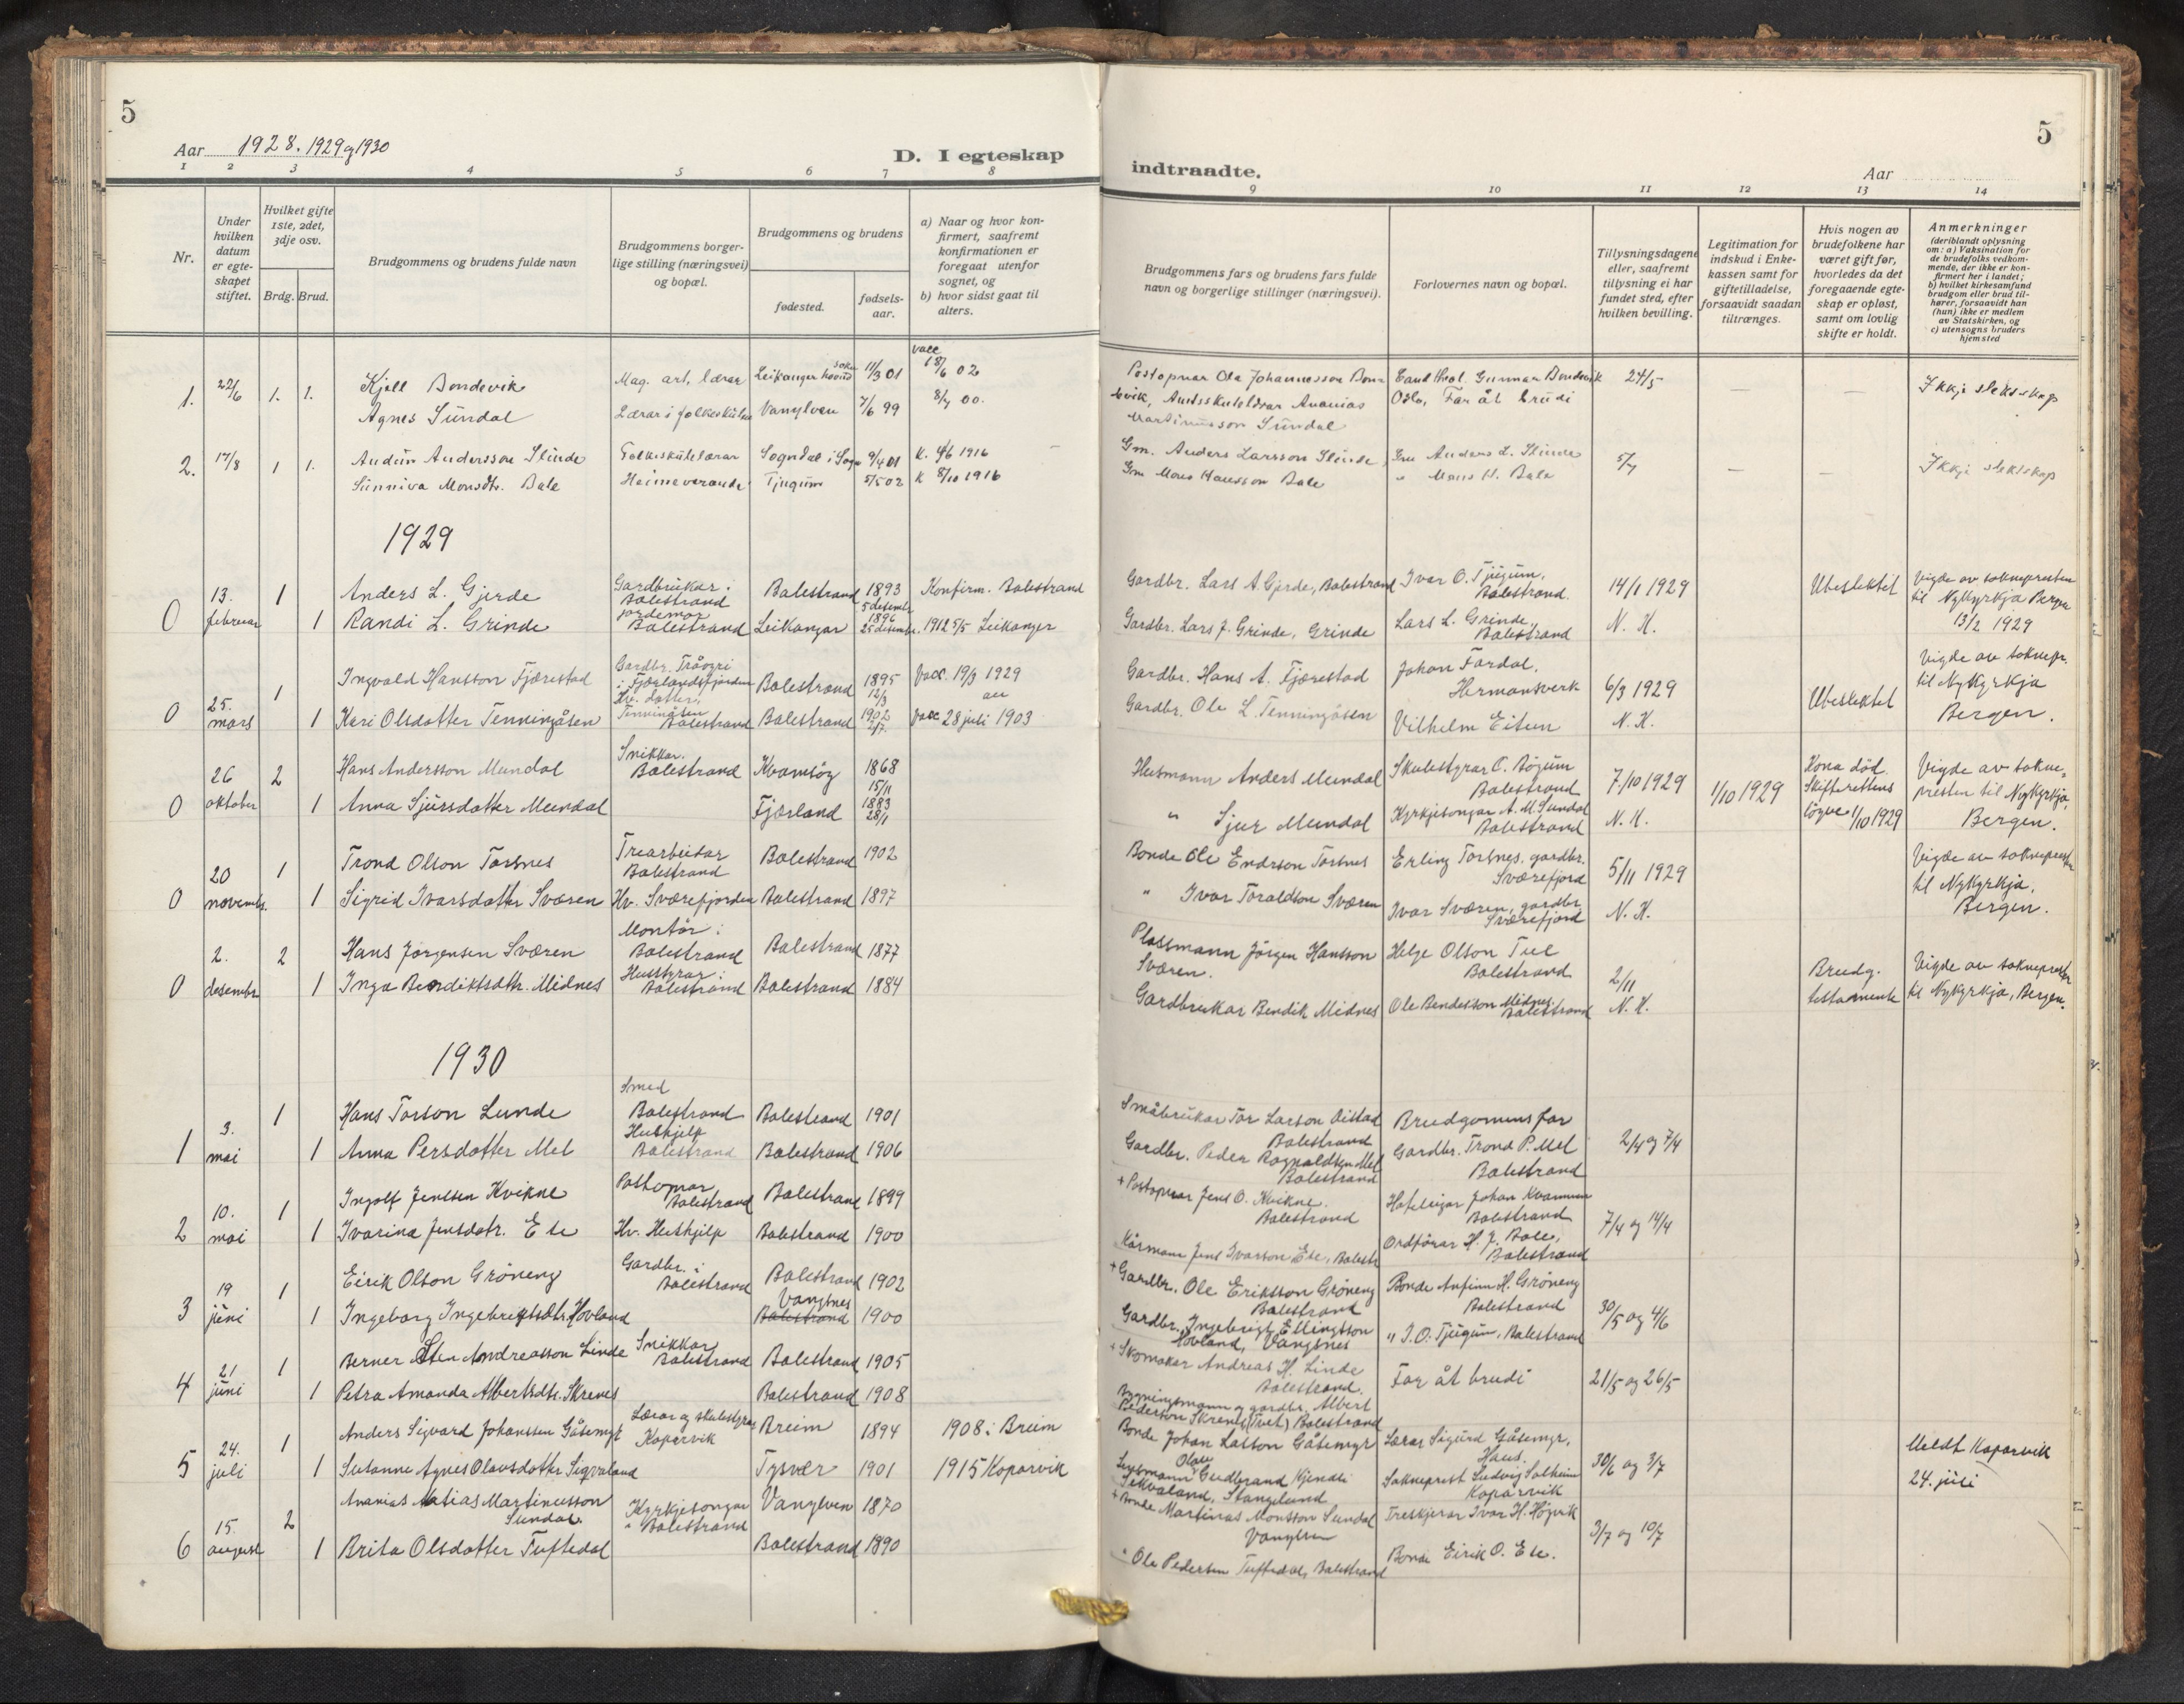 5
Aar 1928. 1929 og 1930
D. I egteskap
1 2 3 4 5 6 7 8
Nr.
Under hvilken datum er egteskapet stiftet.
Hvilket gifte 1ste, 2det, 3dje osv.
Brdg. Brud.
Brudgommens og brudens fulde navn
Brudgommens borgerlige stilling (næringsvei) og bopæl.
Brudgommens og brudens
fødested.
fødselsaar.
a) Naar og hvor konfirmert, saafremt konfirmationen er foregaat utenfor sognet, og
b) hvor sidst gaat til alters.
1. 22/6 1. 1.
Kjell Bondevik Mag. art, lærar Leikanger 11/3 01 vacc 18/6 02
Agnes Sundal Lærar i folkeskulen Vanylven 7/6 99 8/7 00.
2. 17/8 1 1.
Audun Andersson Slinde Folkeskulelærar Sogndal i Sogn 9/4 01 K. 4/6 1916
Sunniva Monsdtr. Bale Heimeverande Tjugum 5/5 02 K 8/10 1916
1929
0 13. februar 1
Anders L. Gjerde Gardbrukar i Balestrand Balestrand 1893 5 desembr Konfirm. Balestrand
1 Randi L. Grinde jordemor Balestrand Leikanger 1896 25 desembr. 1912 5/5 Leikanger
0 25. mars 1
Ingvald Hansson Fjærestad Gardbr. i Fjærlandsfjorden Balestrand 1895 12/3 Vacc. 19/3 1929
1 Kari Olsdatter Tenningåsen Tenningåsen Balestrand Balestrand 1902 2/7 Vacc 28 juli 1903
0 26 oktober 2
Hans Andersson Mundal Snikkar. Balestrand Kvamsøy 1868 15/11
1 Anna Sjursdatter Mundal Fjærland 1883 28/1
0 20 novembr. 1
Trond Olson Torsnes Trearbeidar Balestrand Balestrand 1902
1 Sigrid Ivarsdatter Sværen Hv. Sværefjorden Balestrand 1897
0 2. desembr 2
Hans Jørgensen Sværen Montør i Balestrand Balestrand 1877
1 Inga Bendiktsdtr. Midnes Husstyrar i Balestrand Balestrand 1884
1930
1 3. mai 1
Hans Torson Lunde Smed Balestrand Balestrand 1901
1 Anna Persdotter Mel Huskjelp Balestrand Balestrand 1906
2 10. mai 1
Ingolf Jenssen Kvikne Postopnar Balestrand Balestrand 1899
1 Ivarina Jensdotr. Ese Hv. Huskjelp Balestrand 1900
3 19 juni 1
Eirik Olson Grøneng Gardbr. i Balestrand Balestrand 1902
1 Ingeborg Ingebrigtsdtr. Hovland Vangsnes Balestrand 1900
4 21 juni 1
Berner Sten Andreasson Linde Snikkar Balestrand Balestrand 1905
1 Petra Amanda Albertsdtr. Skrenes Balestrand 1908
5 24. juli 1
Anders Sigvard Johanssen Gåsemyr Lærar og skulestyrar Koparvik Breim 1894 1908 i Breim
1 Susanne Agnes Olavsdotter Sigvaland Tysvær 1901 1915 Koparvik
6 15. august 2
Ananias Matias Martinusson Sundal. Kyrkjesongar Balestrand Vanylven 1870
1 Brita Olsdotter Tuftedal Balestrand 1890
5
indtraadte.
Aar
9 10 11 12 13 14
Brudgommens fars og brudens fars fulde navn og borgerlige stillinger (næringsvei).
Forlovernes navn og bopæl.
Tillysningsdagene eller, saafremt tillysning ei har fundet sted, efter hvilken bevilling.
Legitimation for indskud i Enkekassen samt for giftetilladelse, forsaavidt saadan tiltrænges.
Hvis nogen av brudefolkene har været gift før, hvorledes da det foregaaende egteskap er opløst, samt om lovlig skifte er holdt.
Anmerkninger
(deriblandt oplysning om: a) Vaksination for de brudefolks vedkommende, der ikke er konfirmert her i landet; b) hvilket kirkesamfund brudgom eller brud tilhører, forsaavidt han (hun) ikke er medlem av Statskirken, og c) utensogns bruders hjemsted
Postopnar Ola Johannesson Bondevik, Cand theol. Gunnar Bondevik 24/5 Ikkje slektskap
Amtsskulelærar Ananias Martinusson Sundal Oslo, Far åt brudi
Gm. Anders Larsson Slinde Gm Anders L. Slinde 5/7 Ikkje slektskap
Gm Mons Hansson Bale " Mons H. Bale
Gardbr. Lars A. Gjerde, Balestrand Ivar O. Tjugum, Balestrand. 14/1 1929 Ubeslektet Vigde av soknepresten til Nykyrkja Bergen 13/2 1929
Gardbr. Lars J. Grinde, Grinde Lars L. Grinde, Balestrand N. K.
Gardbr. Hans A. Fjærestad Johan Fardal, Hermansverk 6/3 1929 Ubeslektet Vigde av soknepr. til Nykyrkja Bergen.
Gardbr. Ole L. Tenningåsen Vilhelm Eitun N. K.
Husmann Anders Mundal Skulestyrar O. Bøyum Balestrand 7/10 1929 1/10 1929 Kona død. Skifterettens 1/10 1929 Vigde av soknepresten til Nykyrkja, Bergen.
" Sjur Mundal Kyrkjesongar A. M. Sundal Balestrand N. K.
Bonde Ole Endrson Torsnes Erling Torsnes. gardbr. Sværefjord 5/11 1929 Vigde av soknepresten til Nykyrkja, Bergen.
" Ivar Toraldson Sværen Ivar Sværen, gardbr. Sværefjord N. K.
Plassmann Jørgen Hansson Sværen. Helge Olson Tue Balestrand 2/11 Brudg. testamente Vigde av soknepresten til Nykyrkja, Bergen.
Gardbrukar Bendik Midnes Ole Bendesson Midnes. Balestrand N. K.
Småbrukar Tor Larson Balestrand Brudgomens far 2/4 og 7/4
Gardbr. Peder Ragnaldsen Mel Balestrand Gardbr. Trond P. Mel Balestrand
+ Postopnar Jens O. Kvikne. Balestrand Hoteleigar Johan Kvamme Balestrand 7/4 og 14/4
Jens Ivarson Ese, Balestr Ordførar H. J. Bale, Balestrand
+ Gardbr. Ole Eriksson Grøneng Balestrand Bonde Anfinn H. Grøneng Balestrand 30/5 og 4/6
Gardbr. Ingebrigt Ellingsson Hovland, Vangsnes " I. O. Tjugum, Balestrand
+ Skomaker Andreas H. Linde Balestrand. Far åt brudi 21/5 og 26/5
Bygningsmann og gardbr. Albert Pederson Skrenes (Tuet) Balestrand
Bonde Johan Lasson Gåsemyr Lærar Sigurd Gåsemyr, Haus. 30/6 og 3/7 Utledt Koparvik 24. juli
Olav Gudbrand Sekvaland, Stangeland Sokneprest Ludvig Solheim Koparvik
+ Bonde Martinus Monsson Sundal Vanylven Treskjerar Ivar H. Høyvik 3/7 og 10/7
" Ole Pedersen Tuftedal, Balestrand Bonde Eirik O. Ese.